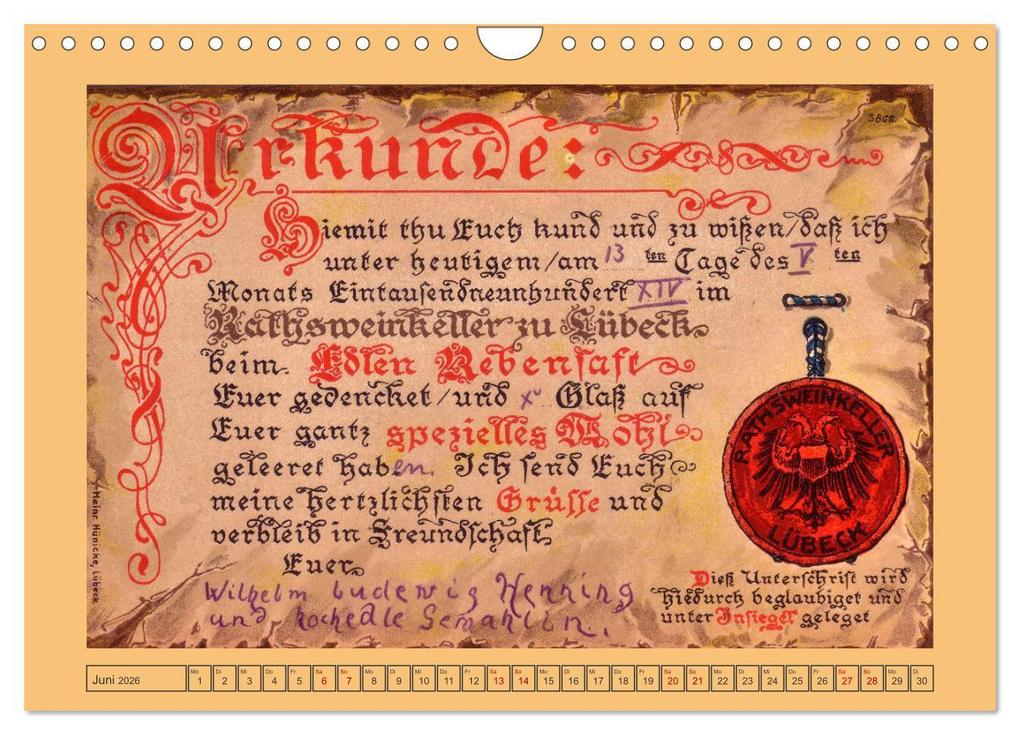 Urkunde:
3866.
Hiemit thu Euch kund und zu wißen/daß ich
unter heutigem/am 13 ten Tage des V ten
Monats Eintausendneunhundert XIV im
Rathsweinkeller zu Lübeck
beim Edlen Rebensaft
Euer gedencket/und x Glaß auf
Euer gantz spezielles Wohl
geleeret haben. Ich send Euch
meine hertzlichsten Grüsse und
verbleib in Freundschaft
Euer
Wilhelm Ludewig Henning
und hochedle Gemahlin.
RATHSWEINKELLER
LÜBECK
Dieß Unterschrift wird
hiedurch beglaubiget und
unter Insiegel geleget
Heinr. Hünicke, Lübeck
Juni 2026
Mo Di Mi Do Fr Sa So Mo Di Mi Do Fr Sa So Mo Di Mi Do Fr Sa So Mo Di Mi Do Fr Sa So Mo Di
1 2 3 4 5 6 7 8 9 10 11 12 13 14 15 16 17 18 19 20 21 22 23 24 25 26 27 28 29 30